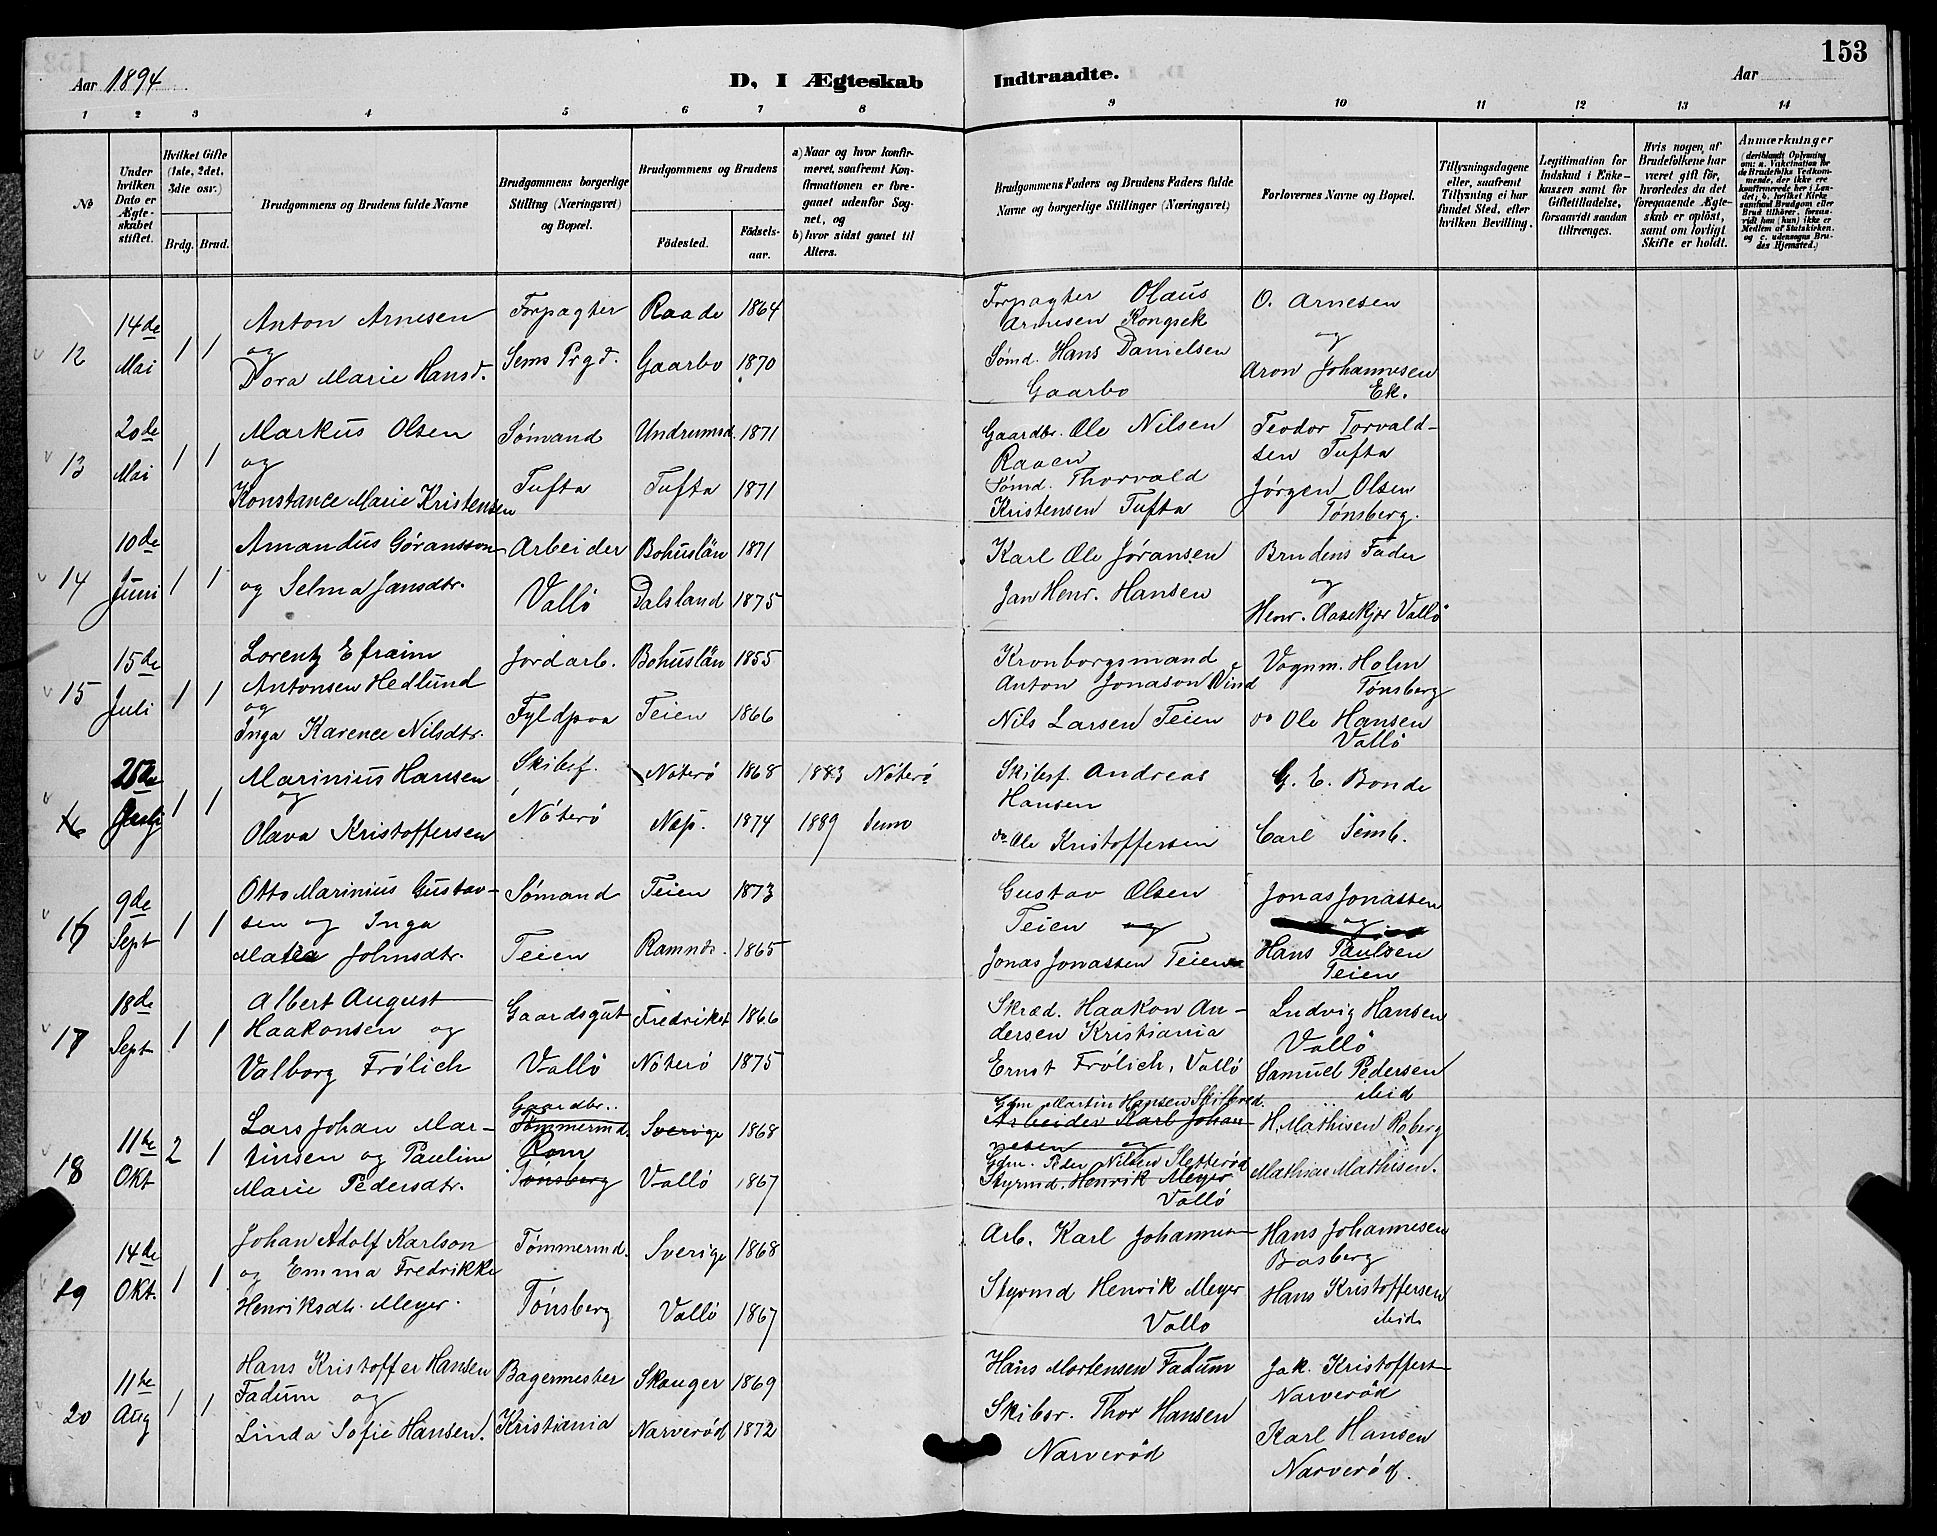 153
Aar 1894
D, I Ægteskab Indtraadte.
Aar
1 2 3 4 5 6 7 8 9 10 11 12 13 14
No
Under hvilken Dato er Ægteskabet stiftet.
Hvilket Gifte (1ste, 2det, 3die osv.)
Brdg. Brud.
Brudgommens og Brudens fulde Navne
Brudgommens borgerlige Stilling (Næringsvei) og Bopæl.
Brudgommens og Brudens
Fødested.
Fødselsaar.
a) Naar og hvor konfirmeret, saafremt Konfirmationen er foregaaet udenfor Sognet, og
b) hvor sidst gaaet til Alters.
Brudgommens Faders og Brudens Faders fulde Navne og borgerlige Stillinger (Næringsvei)
Forlovernes Navne og Bopæl.
Tillysningsdagene eller, saafremt Tillysning ei har fundet Sted, efter hvilken Bevilling.
Legitimation for Indskud i Enkekassen samt for Giftetilladelse, forsaavidt saadan tiltrænges.
Hvis nogen af Brudefolkene har været gift før, hvorledes da det foregaaende Ægteskab er opløst, samt om lovligt Skifte er holdt.
Anmærkninger
(deriblandt Oplysning om: a. Vakcination for de Brudefolks Vedkommende, der ikke ere konfirmerede her i Landet; b. hvilket Kirkesamfund Brudgom eller Brud tilhører, forsaavidt han (hun) ikke er Medlem af Statskirken. og c. udensogns Brudes Hjemsted.)
12 14de Mai 1 1
Anton Arnesen
og
Dora Marie Hansd.
Forpagter
Sems Prgd.
Raade 1864
Gaarbo 1870
Forpagter Olaus
Arnesen Kongsek
Sømd. Hans Danielsen
Gaarbo
O. Arnesen
og
Aron Johannesen
Ek.
13 20de Mai 1 1
Markus Olsen
og
Konstance Marie Kristensen
Sømand
Tufta
Undrumsd. 1871
Tufta 1871
Gaardbr. Ole Nilsen
Raaen
Sømd. Thorvald
Kristensen Tufta
Teodor Torvald-
sen Tufta
Jørgen Olsen
Tønsberg.
14 10de Juni 1 1
Amandus Göransson
og Selma Jansdtr.
Arbeider
Vallö
Bohuslän 1871
Dalsland 1875
Karl Ole Jøransen
Jan Henr. Hansen
Brudens Fader
og
Henr. Aasekjær Vallö
15 15de Juli 1 1
Lorentz Efraim
Antonsen Hedlund
og
Inga Karence Nilsdtr.
Jordarb.
Fyldpaa
Bohuslän 1855
Teien 1866
Kronborgsmand
Anton Jonason Wind
Nils Larsen Teien
Vognm. Holm
Tønsberg
do Ole Hansen
Vallö
25de 1 1
Marinius Hansen
og
Olava Kristoffersen
Skibsf.
Nöterö
Nöterö 1868
Nap. 1874
1883 Nöterö
1889
Skibsf. Andreas
Hansen
do Ole Kristoffersen
G. E. Bonde
Carl Semb.
16 9de Sept 1 1
Otto Marinius Gustav-
sen og Inga
Johnsdtr.
Sømand
Teien
Teien 1873
Ramnes. 1865
Gustav Olsen
Teien og
Jonas Jonassen Teien
Jonas Jonassen
og
Hans Paulsen
Teien
17 18de Sept 1 1
Albert August
Haakonsen og
Valborg Frölich
Gaardsgut
Vallö
Fredrikst 1866
Nöterö 1875
Skræd. Haakon An-
dersen Kristiania
Ernst Frölich, Vallö
Ludvig Hansen
Vallö
Samuel Pedersen
ibid
18 11te Okt 2 1
Lars Johan Mar-
tinsen og Pauline
Marie Pedersdtr.
Gaardbr.
Tømmermd.
Rom
Tønsberg
Sverige 1868
Vallö 1867
Gdm Martin Hansen
Arbeider Karl Johan-
nesen og
Gdm. Peder Nilsen Sletterød
Styrmd. Henrik Meyer
Vallö
H. Mathisen Roberg
Mathias Mathisen.
19 14de Okt. 1 1
Johan Adolf Karlson
og Emma Fredrikke
Henriksdtr. Meyer.
Tømmermd.
Tønsberg
Sverige 1868
Vallö 1867
Arb. Karl Johannesen
Styrmd Henrik Meyer
Vallö
Hans Johannesen
Basberg
Hans Kristoffersen
ibid
20 11te Aug 1 1
Hans Kristoffer Hansen
Fadum og
Linda Sofie Hansen.
Bagermester
Kristiania
Skouger 1869
Narverød 1872
Hans Mortensen Fadum
Skibsr. Thor Hansen
Narverød
Jak. Kristoffers
Narverød
Karl Hansen
Narverød.